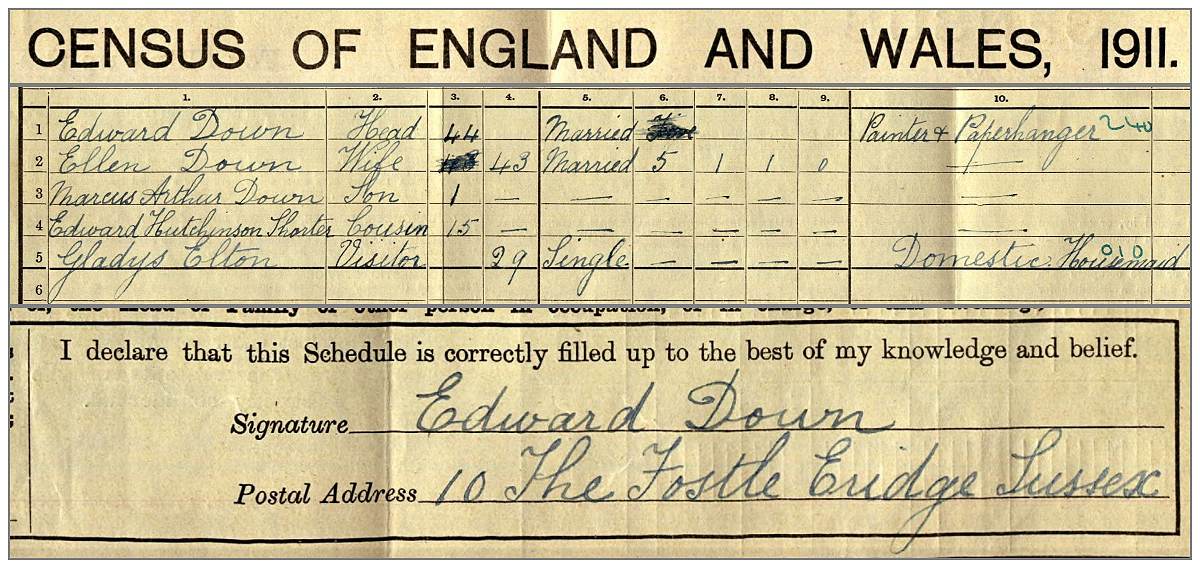 CENSUS OF ENGLAND AND WALES, 1911.
1. 2. 3. 4. 5. 6. 7. 8. 9. 10.
1 Edward Down Head 44 Married Painter & Paperhanger 240
2 Ellen Down Wife 43 Married 5 1 1 0 —
3 Marcus Arthur Down Son 1 — — — — — — —
4 Edward Hutchinson Shorter Cousin 15 — — — — — — —
5 Gladys Elton Visitor 29 Single — — — — Domestic. Housemaid 010
6
I declare that this Schedule is correctly filled up to the best of my knowledge and belief.
Signature Edward Down
Postal Address 10 The Fostle Eridge Sussex